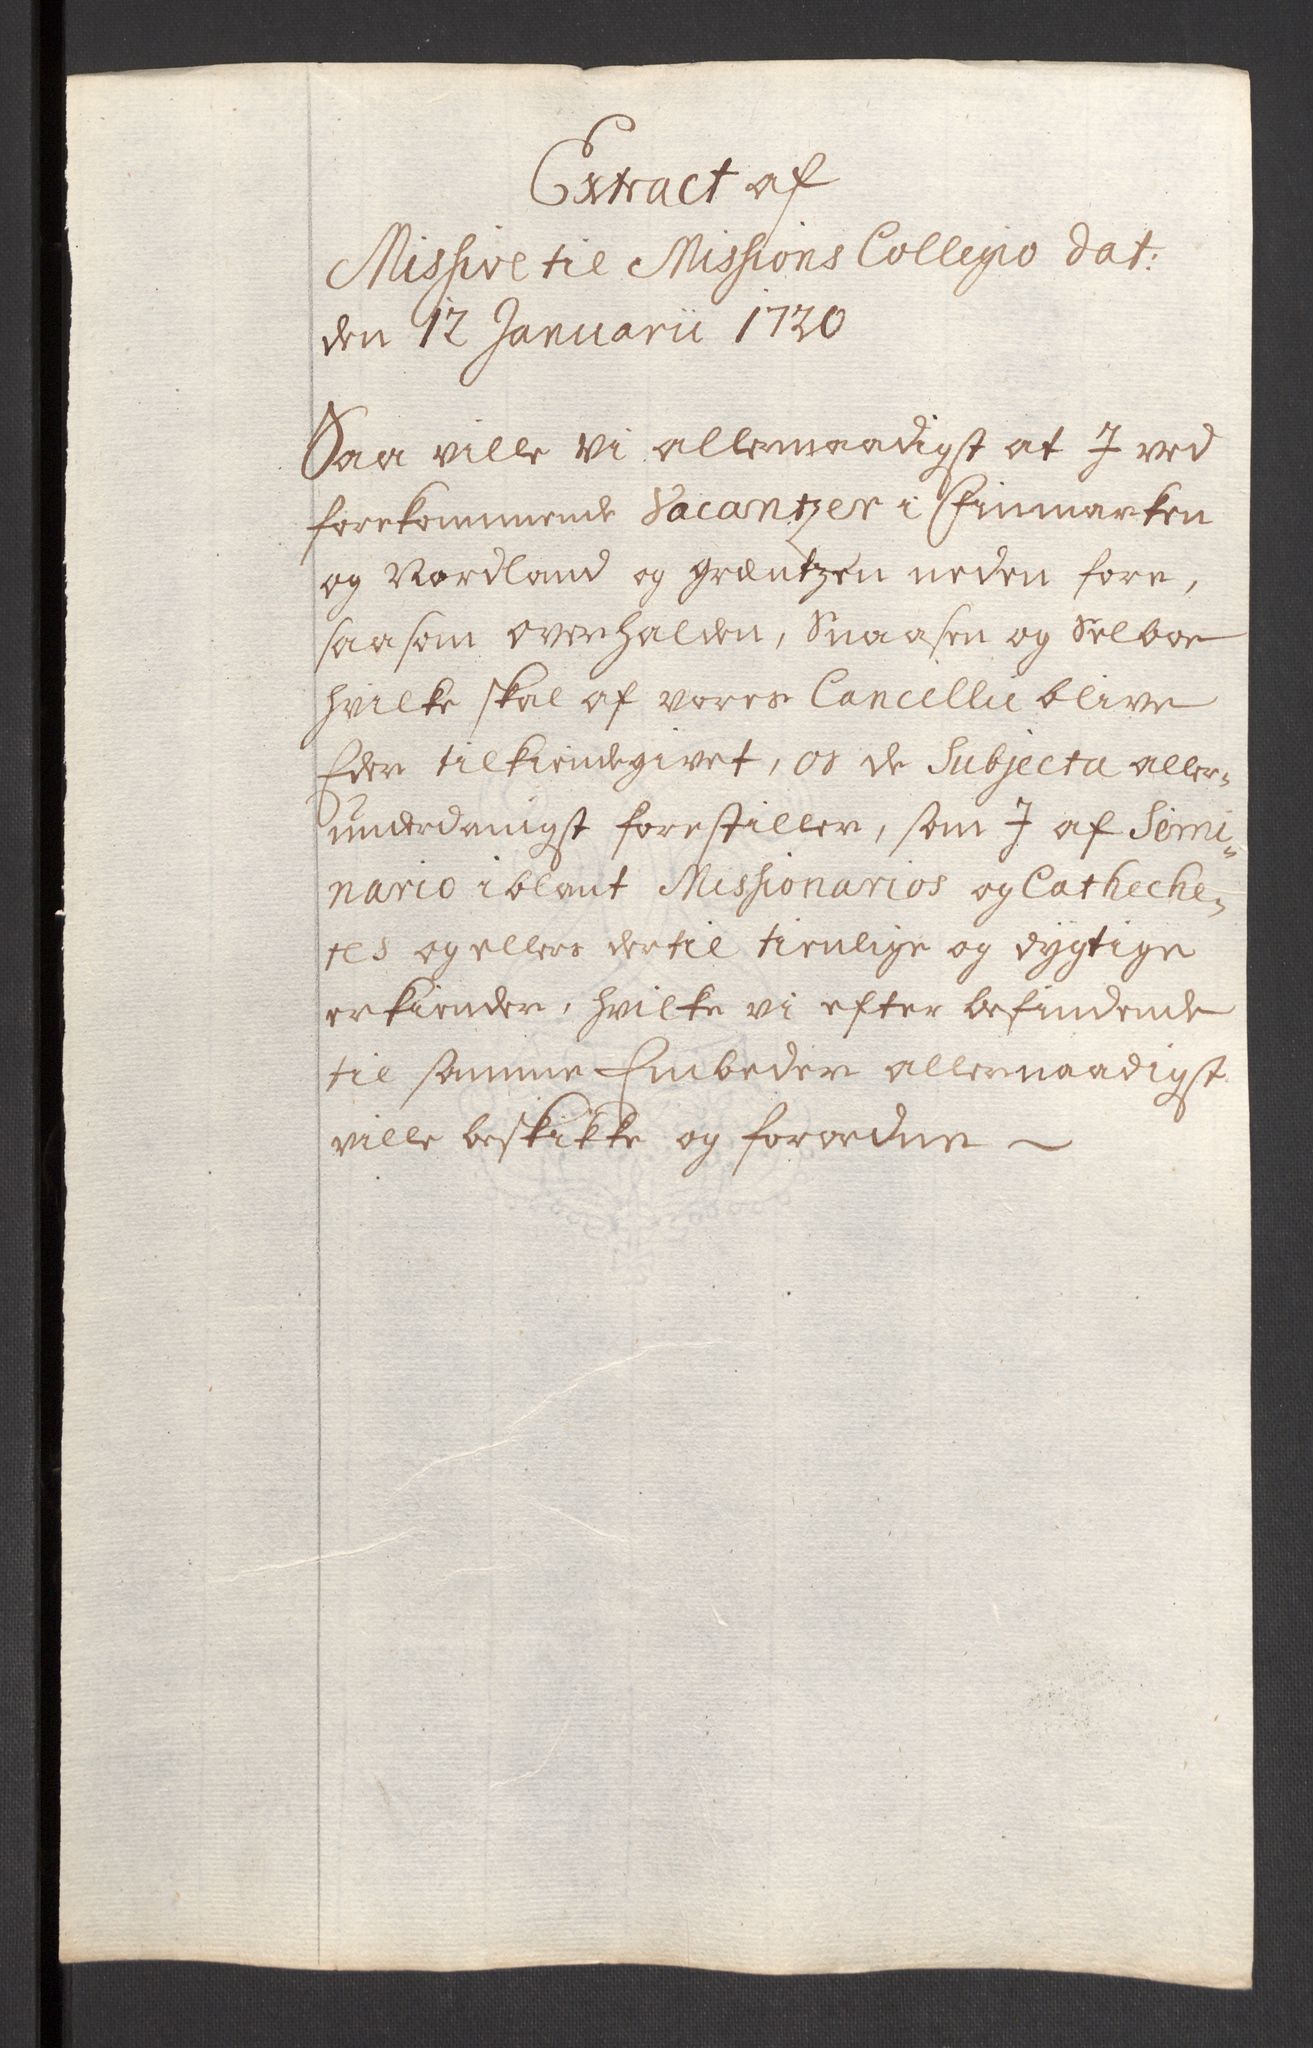 Extract af
Missive til Missions Collegio dat:
den 12 Januarii 1720
Saa ville vi allernaadigst at I ved
forekommende Vacantzer i Finmarken
og Nordland og græntzen neden fore,
saasom Overhalden, Snaasen og Selboe
hvilke skal af vores Cancellie blive
Eder tilkiendegivet, os de Subjecta aller„
underdanigst forestiller, som I af Semi„
nario iblant Missionarios og Catheche„
tes og ellers dertil tienlige og dygtige
erkiender, hvilke vi efter befindende
til samme Embeder allernaadigst
ville beskikke og forordne ~